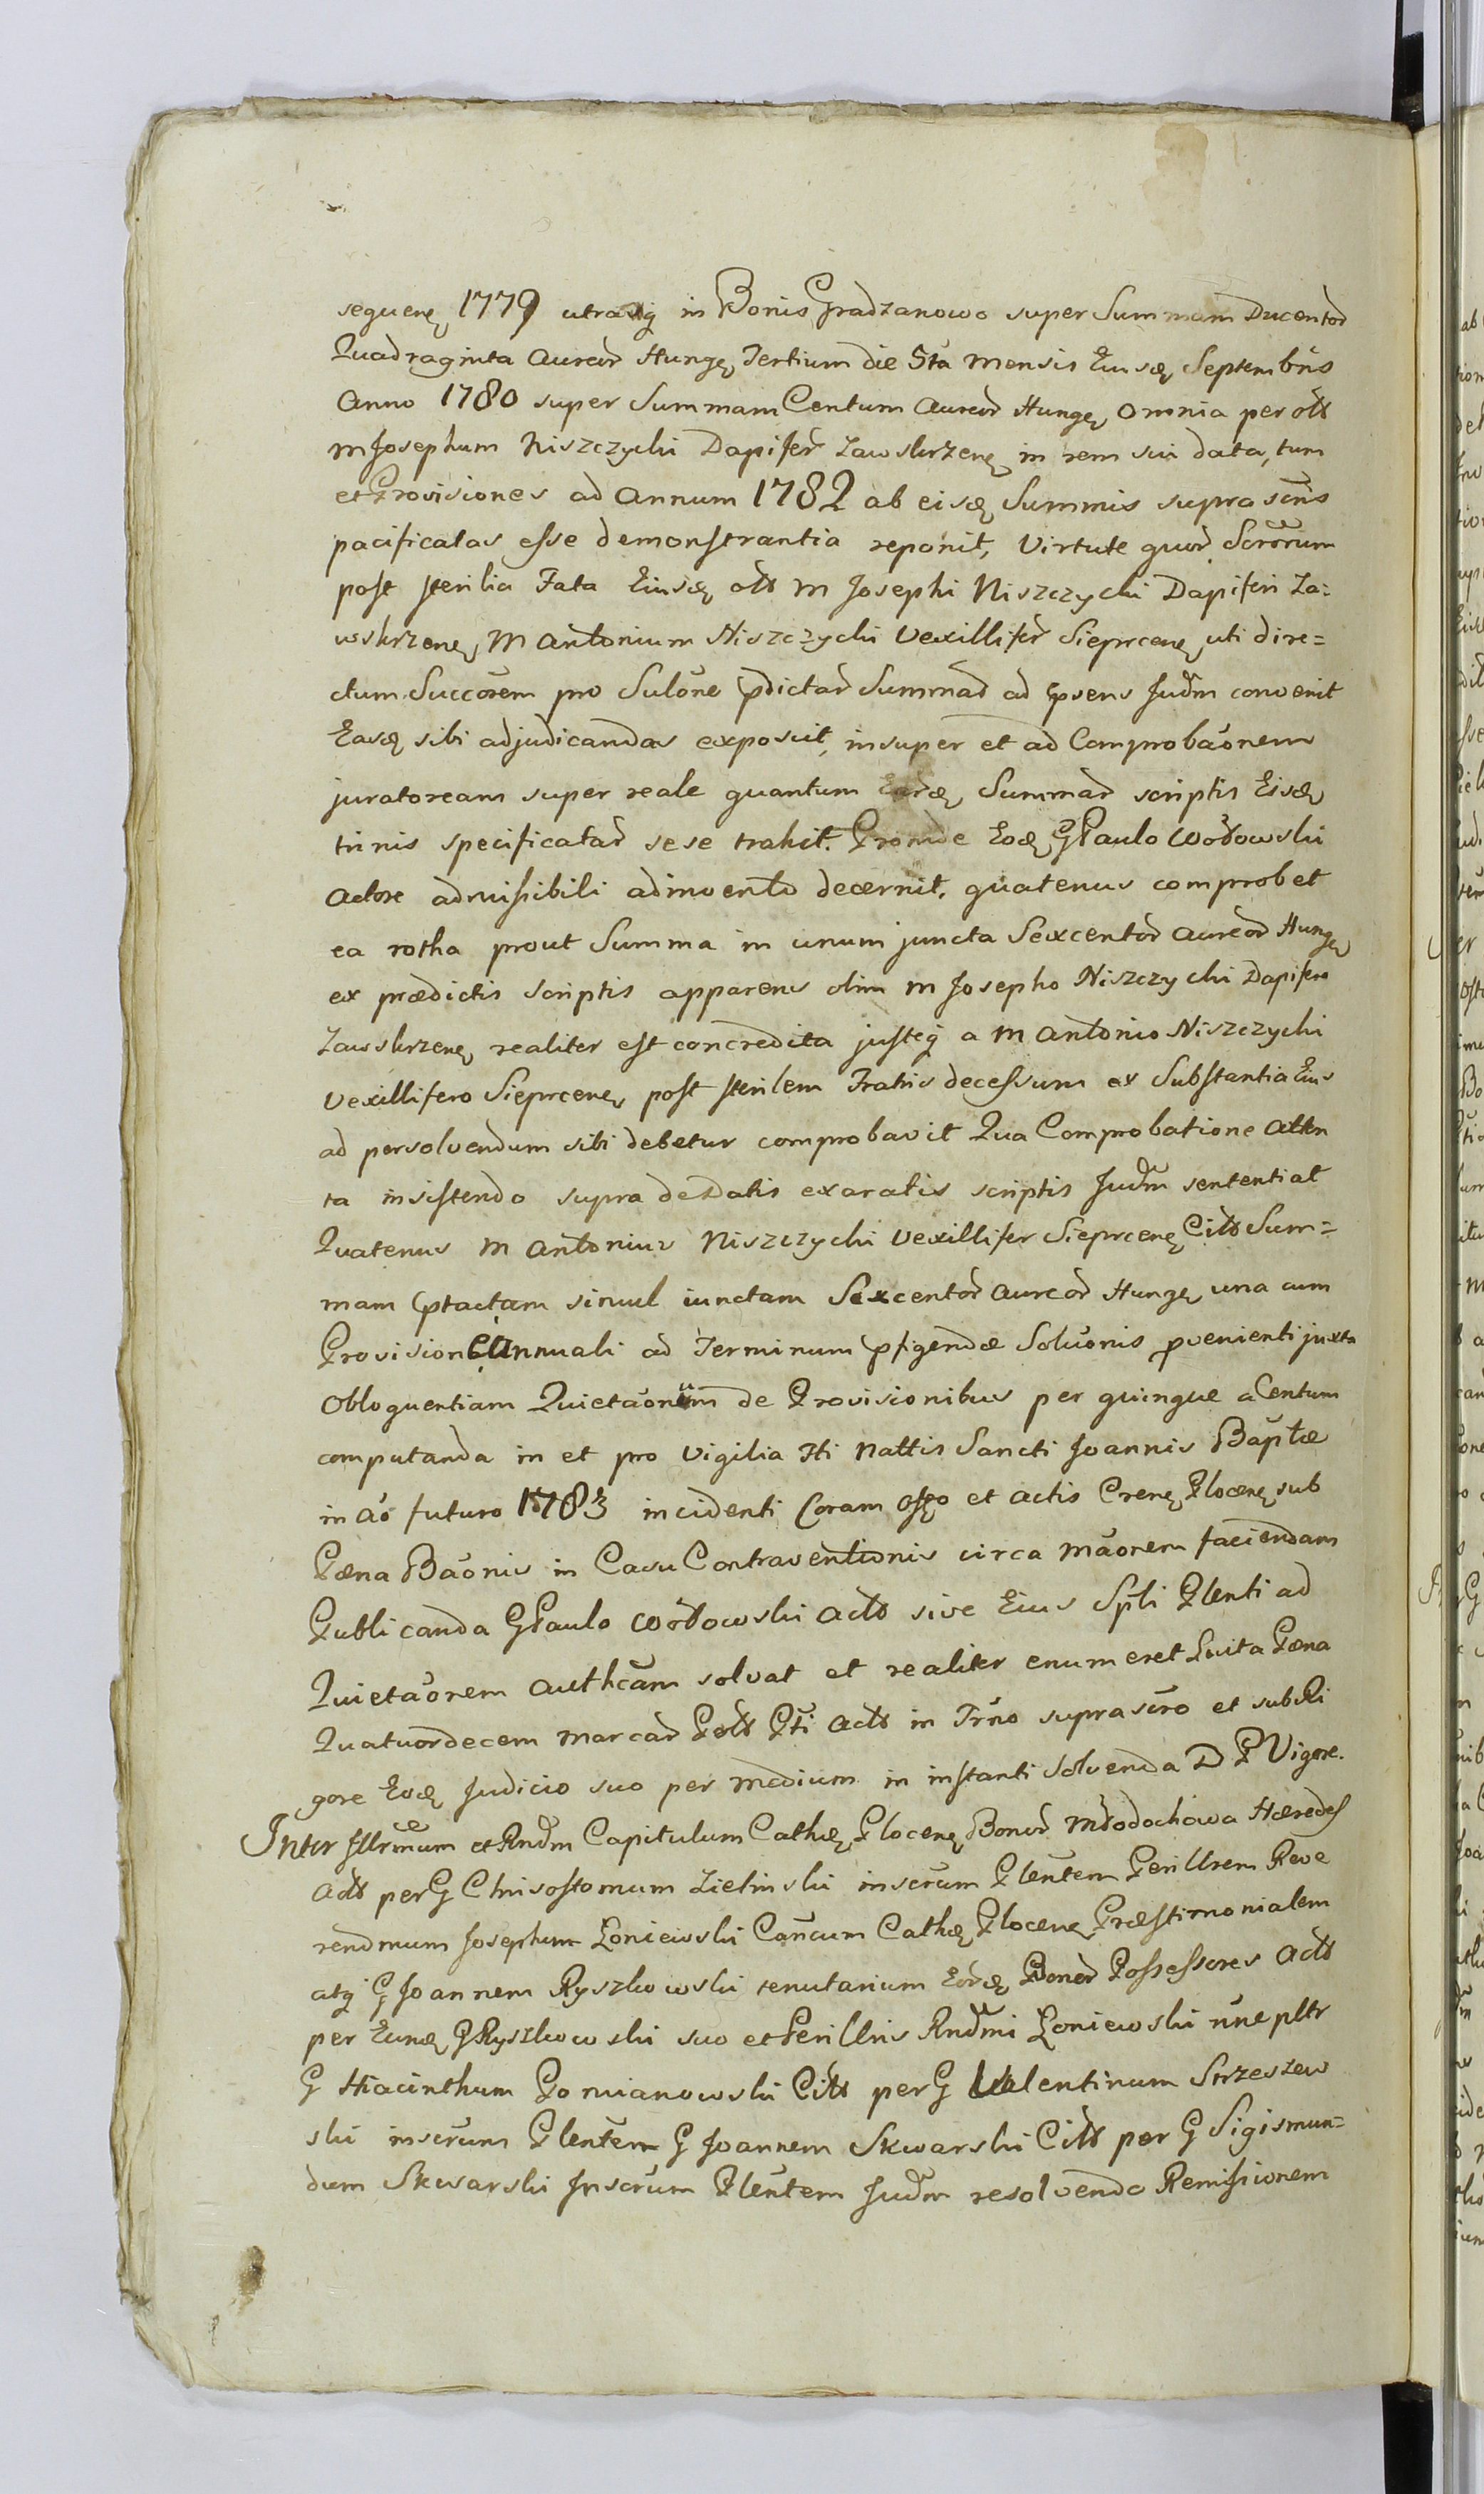 sequenę 1779 utrasq in Bonis Gradzanowo super Summam Ducentoꝝ
Quadraginta Aureoꝝ Hungę Tertium die 5ta mensis Eiusdę Septembris
Anno 1780 super Summam Centum Aureoꝝ Hungę omnia per olt
M Josephum Niszczycki Dapiferꝝ Zawskrzenę in rem sui data, tum
et Provisiones ad Annum 1782 ab eisdę Summis suprascriis
pacificatas esse demonstrantia reponit, Virtute quoꝝ Scrorum
post sterilia Fata Eiusdę olt M Josephi Niszczycki Dapiferi Za:
wskrzenę M Antonium Niszczycki Vexilliferꝝ Sieprcenę uti dire=
ctum Succorem pro Sulone pdictaꝝ Summaꝝ ad psens Judm convenit
Easdę sibi adjudicandas exposcit, insuper et ad Comprobaonem
juratoream super reale quantum Eardę Summaꝝ scriptis Eisdę
trinis specificataꝝ sese trahit. Proinde Eodę G Paulo Wodowski
Actore admissibili adinvento decernit, quatenus comprobet
ea rotha prout Summa in unum juncta Sexcentoꝝ Aureoꝝ Hungę
ex prædictis scriptis apparens olim M Josepho Niszczycki Dapifero
Zawskrzenę realiter est concredita justeq a M Antonio Niszczycki
Vexillifero Sieprcenę post sterilem Fratris decessum ex Substantia Eius
ad persolvendum sibi debetur comprobavit Qua Comprobatione Atten
ta insistendo supra de Datis exaratis scriptis Judm sententiat
Quatenus M Antonius Niszczycki Vexillifer Sieprcenę Citt Sum=
mam ptactam simul iunctam Sexcentoꝝ Aureoꝝ Hungę una cum
Provisione Annuali ad Terminum pfigendæ Soluonis pvenienti juxta
Obloquentiam Quietaonum de Provisionibus per quinque a Centum
computanda in et pro Vigilia Fti Nattis Sancti Joannis Baptæ
in Ao futuro 1783 incidenti Coram Offo et Actis Crenę Plocenę sub
Pæna Baonis in Casu Contraventionis circa Maonem faciendam
Publicanda G Paulo Wodowski Actt sive Eius Spli Plenti ad
Quietaonem Authcam solvat et realiter enumeret Luita Pæna
Quatuordecem Marcaꝝ Pott Pti Actt in Trno suprascro et sub Ri
gore Eodę Judicio suo per medium in instanti solvenda D P Vigore.
Inter Illrmum et Rndm Capitulum Cathę Plocenę Bonoꝝ Młodochowa Hæredes
Actt per G Chrisostomum Zielinski inscrum Plentem Perillrem Reve
rendmum Josephum Łoniewski Cancum Cathę Plocenę Præstimonialem
atq G Joannem Ryszkowski tenutarium Eordę Bonoꝝ Possessores Actt
per Eundę G Ryszkowski suo et Perillris Rndmi Łoniewski nne pltr
G Hiacinthum Pomianowski Citt per G Valentinum Strzeszew
ski inscrum Plentem G Joannem Skwarski Citt per G Sigismun=
dum Skwarski Inscrum Plentem Judm resolvendo Remissionem